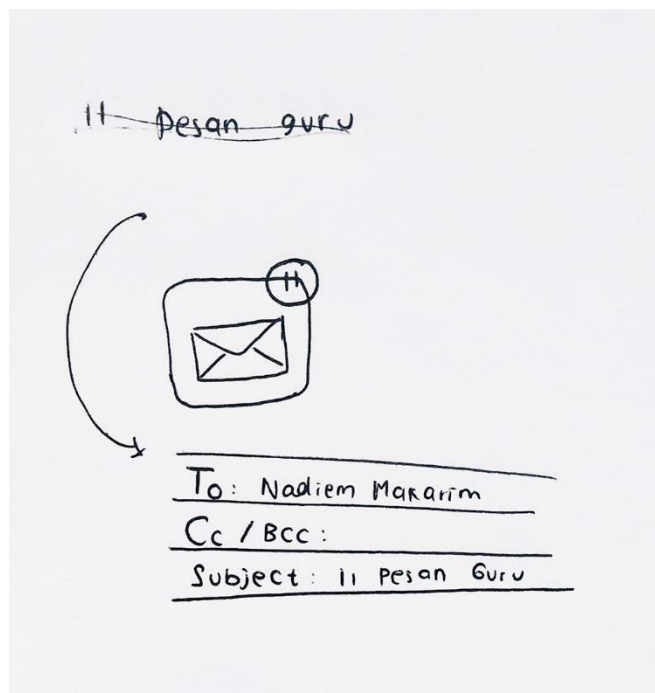 11 Pesan guru
11
To: Nadiem Makarim
Cc / BCC:
Subject: 11 Pesan Guru